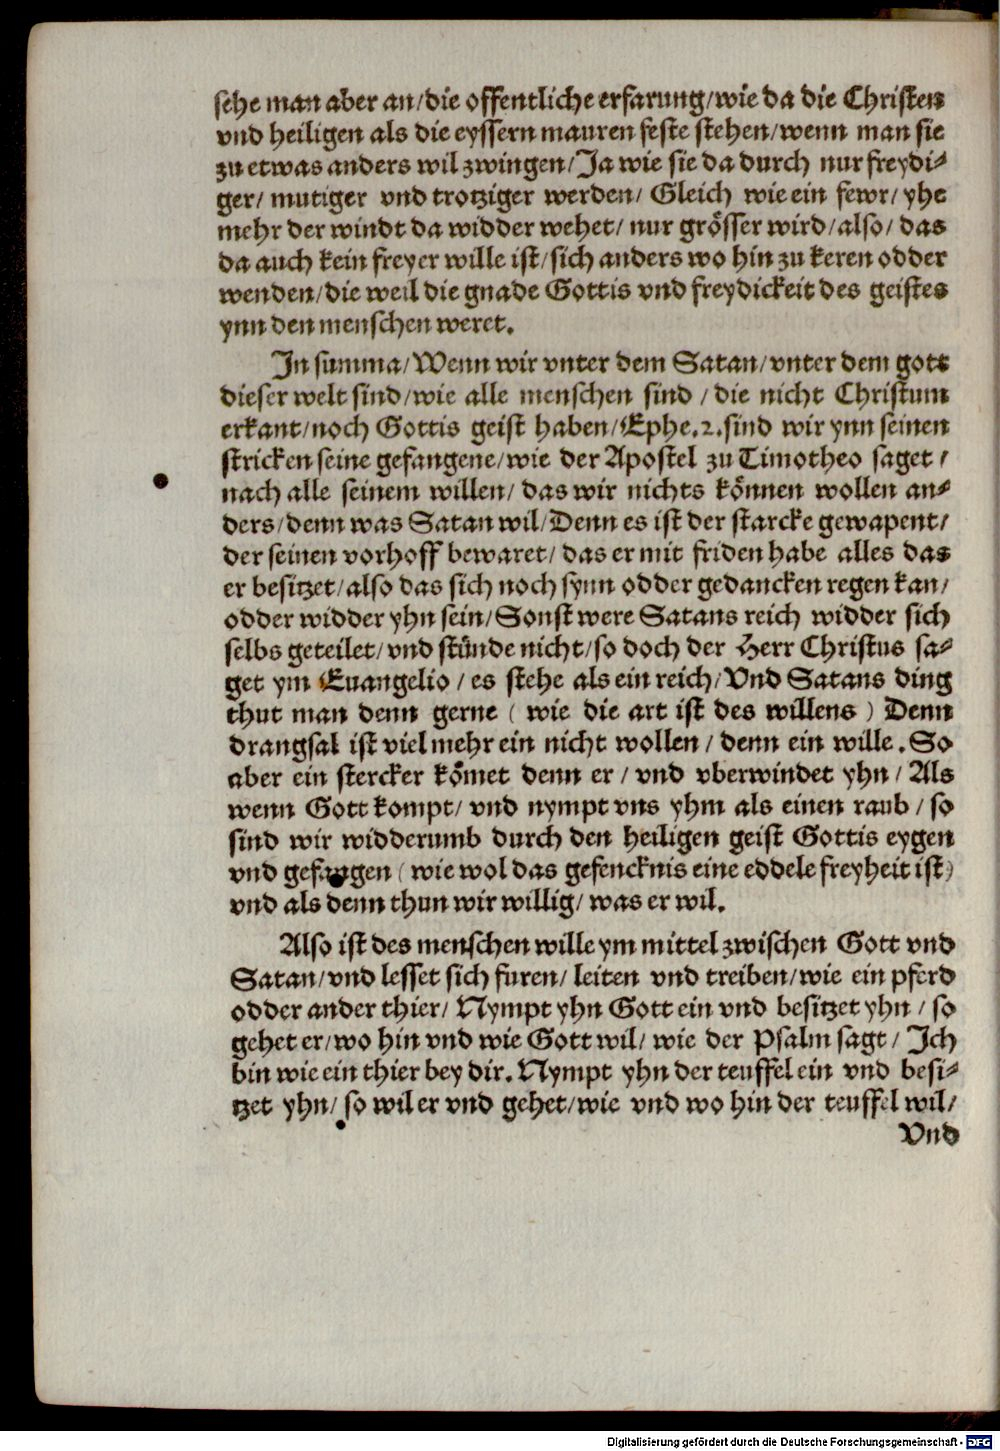 sehe man aber an/die offentliche erfarung/wie da die Christen
vnd heiligen als die eyssern mauren feste stehen/wenn man sie
zu etwas anders wil zwingen/Ja wie sie da durch nur freydi⸗
ger/ mutiger vnd trotziger werden/ Gleich wie ein fewr/ yhe
mehr der windt da widder wehet/ nur grösser wird/also/ das
da auch kein freyer wille ist/sich anders wo hin zu keren odder
wenden/die weil die gnade Gottis vnd freydickeit des geistes
ynn den menschen weret.
In summa/Wenn wir vnter dem Satan/vnter dem gott
dieser welt sind/wie alle menschen sind / die nicht Christum
erkant/noch Gottis geist haben/Ephe.2.sind wir ynn seinen
stricken seine gefangene/wie der Apostel zu Timotheo saget /
nach alle seinem willen/ das wir nichts können wollen an⸗
ders/denn was Satan wil/Denn es ist der starcke gewapent/
der seinen vorhoff bewaret/ das er mit friden habe alles das
er besitzet/also das sich noch synn odder gedancken regen kan/
odder widder yhn sein/Sonst were Satans reich widder sich
selbs geteilet/vnd stünde nicht/so doch der Herr Christus sa⸗
get ym Euangelio / es stehe als ein reich/Vnd Satans ding
thut man denn gerne ( wie die art ist des willens ) Denn
drangsal ist viel mehr ein nicht wollen / denn ein wille. So
aber ein stercker kömet denn er / vnd vberwindet yhn / Als
wenn Gott kompt/ vnd nympt vns yhm als einen raub / so
sind wir widderumb durch den heiligen geist Gottis eygen
vnd gefangen ( wie wol das gefencknis eine eddele freyheit ist)
vnd als denn thun wir willig/ was er wil.
Also ist des menschen wille ym mittel zwischen Gott vnd
Satan/vnd lesset sich furen/ leiten vnd treiben/wie ein pferd
odder ander thier/ Nympt yhn Gott ein vnd besitzet yhn / so
gehet er/wo hin vnd wie Gott wil/ wie der Psalm sagt / Ich
bin wie ein thier bey dir. Nympt yhn der teuffel ein vnd besi⸗
tzet yhn/ so wil er vnd gehet/wie vnd wo hin der teuffel wil/
Vnd
Digitalisierung gefördert durch die Deutsche Forschungsgemeinschaft - DFG